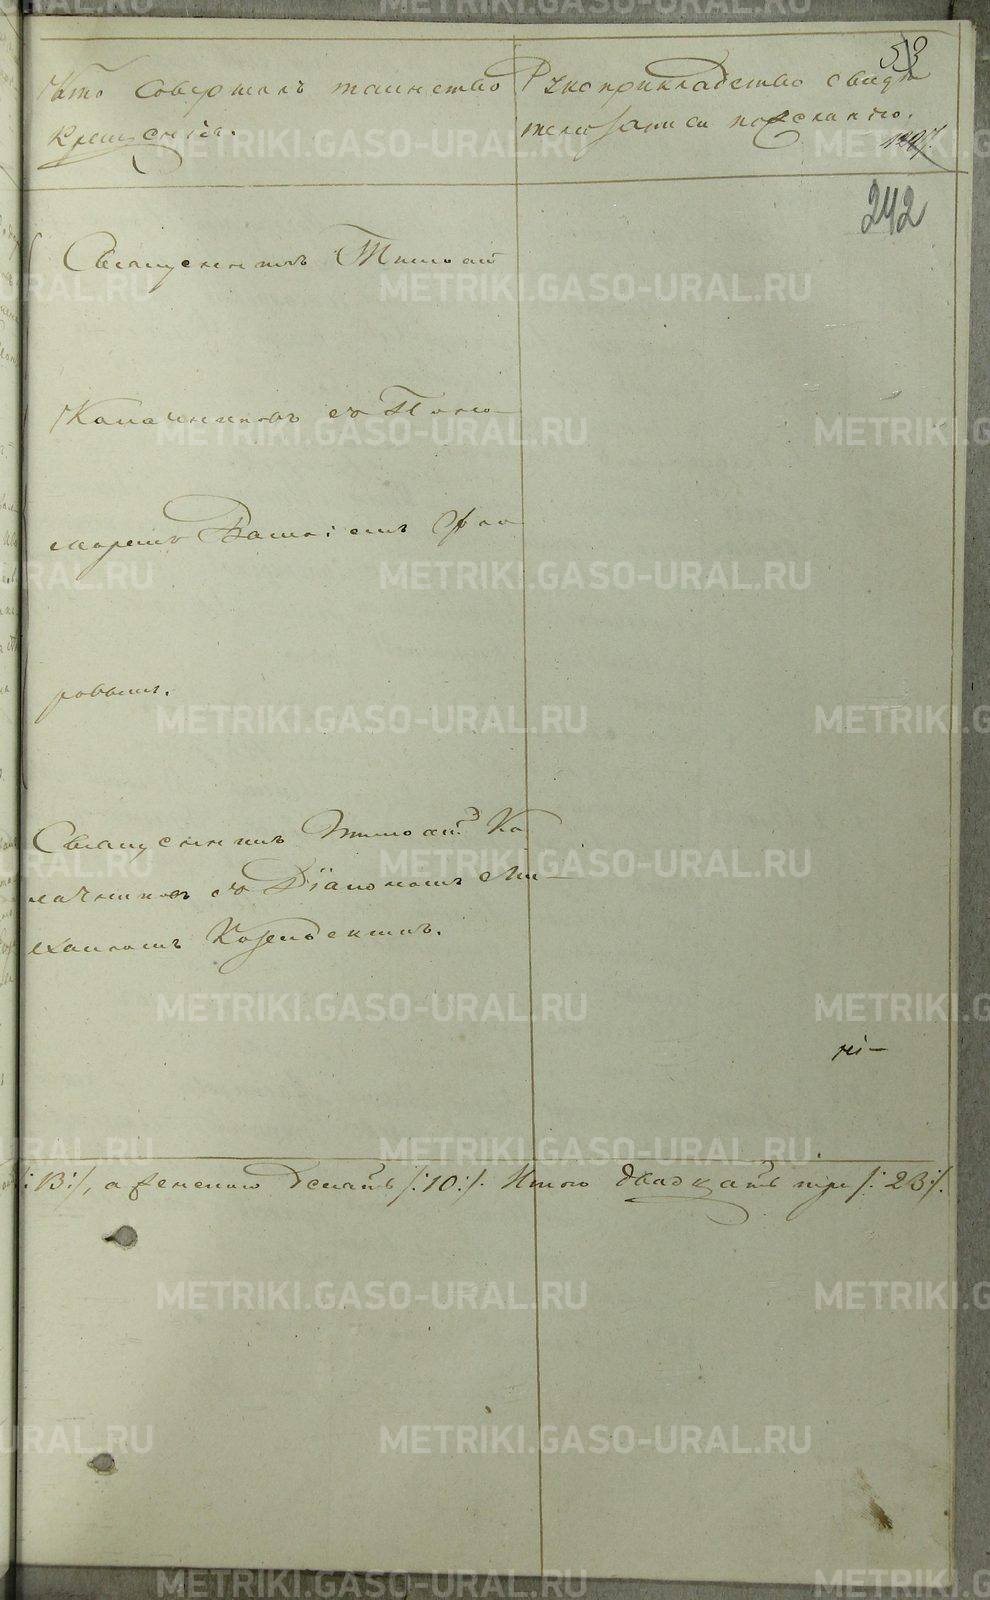 53
Кто совершалъ таинство
крещенія.
Рукоприкладство свидѣ
телей записи по желанію.
1297.
242
Священникъ Тимоѳей
Калачниковъ съ Поно-
маремъ Васил:емъ Фло
ровымъ.
Священникъ Тимоѳей Ка
лачниковъ съ Діакономъ Ми-
хаиломъ
:13:/, а женскаго Десять /:10:/. Итого двадцать три /:23:/.
METRIKI.GASO-URAL.RU